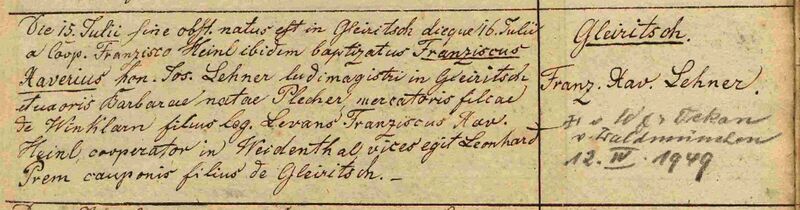 Die 15. Julii sine obst. natus est in Gleiritsch dieque 16. Julii
a Coop. Franzisco Heinl ibidem baptizatus Franziscus
Xaverius hon. Jos. Lehner ludimagistri in Gleiritsch
et uxoris Barbarae natae Plecher, mercatoris filiae
de Winklarn filius leg. Levans Franziscus Xav.
Heinl, cooperator in Weidenthal, vices egit Leonhard
Prem cauponis filius de Gleiritsch. —
Gleiritsch.
Franz. Xav. Lehner.
Dekan
v Waldmünchen
12. IV. 1949